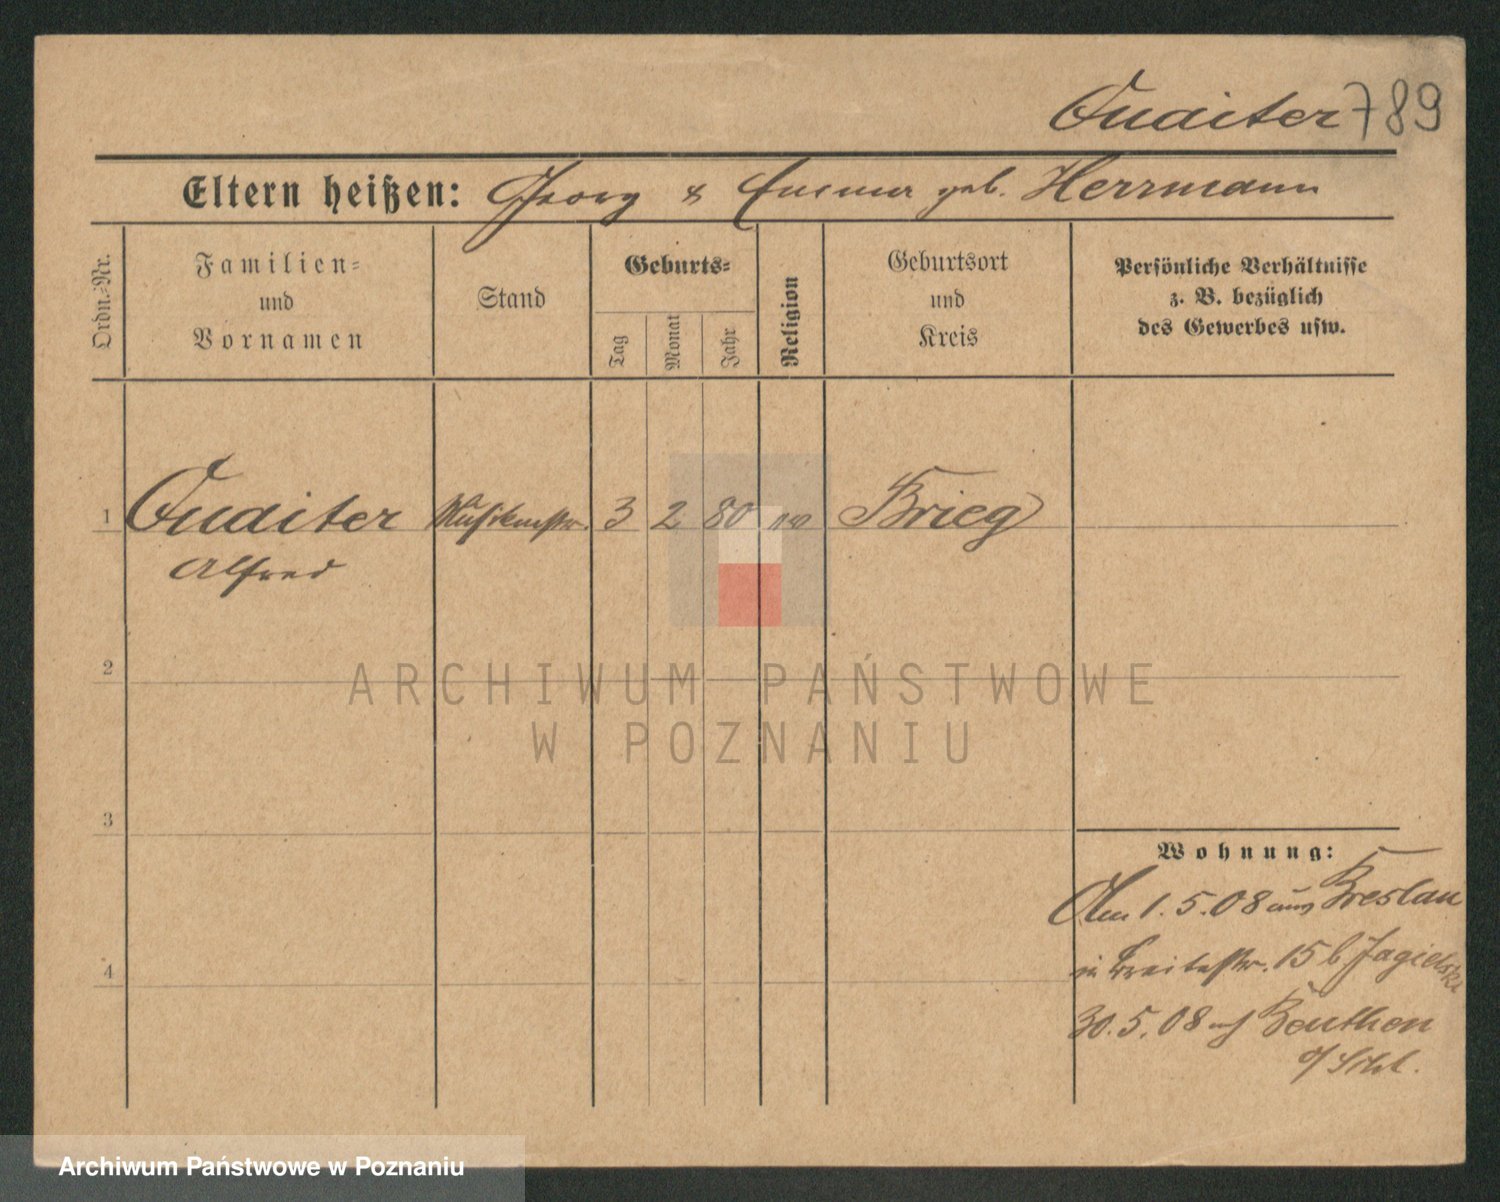 Quaiter 789
Eltern heißen: Georg & Emma geb. Herrmann
Ordn.-Nr.
Familien-
und
Vornamen
Stand
Geburts-
Tag
Monat
Jahr
Religion
Geburtsort
und
Kreis
Persönliche Verhältnisse
z. B. bezüglich
des Gewerbes usw.
1 Quaiter 3 2 80 ev Brieg
Alfred
2
3
4
ARCHIWUM PAŃSTWOWE
W POZNANIU
Wohnung:
Am 1.5.08 aus Breslau
in Breitestr. 15 b Jagielski
30.5.08 nch Beuthen
o/Schl.
Archiwum Państwowe w Poznaniu